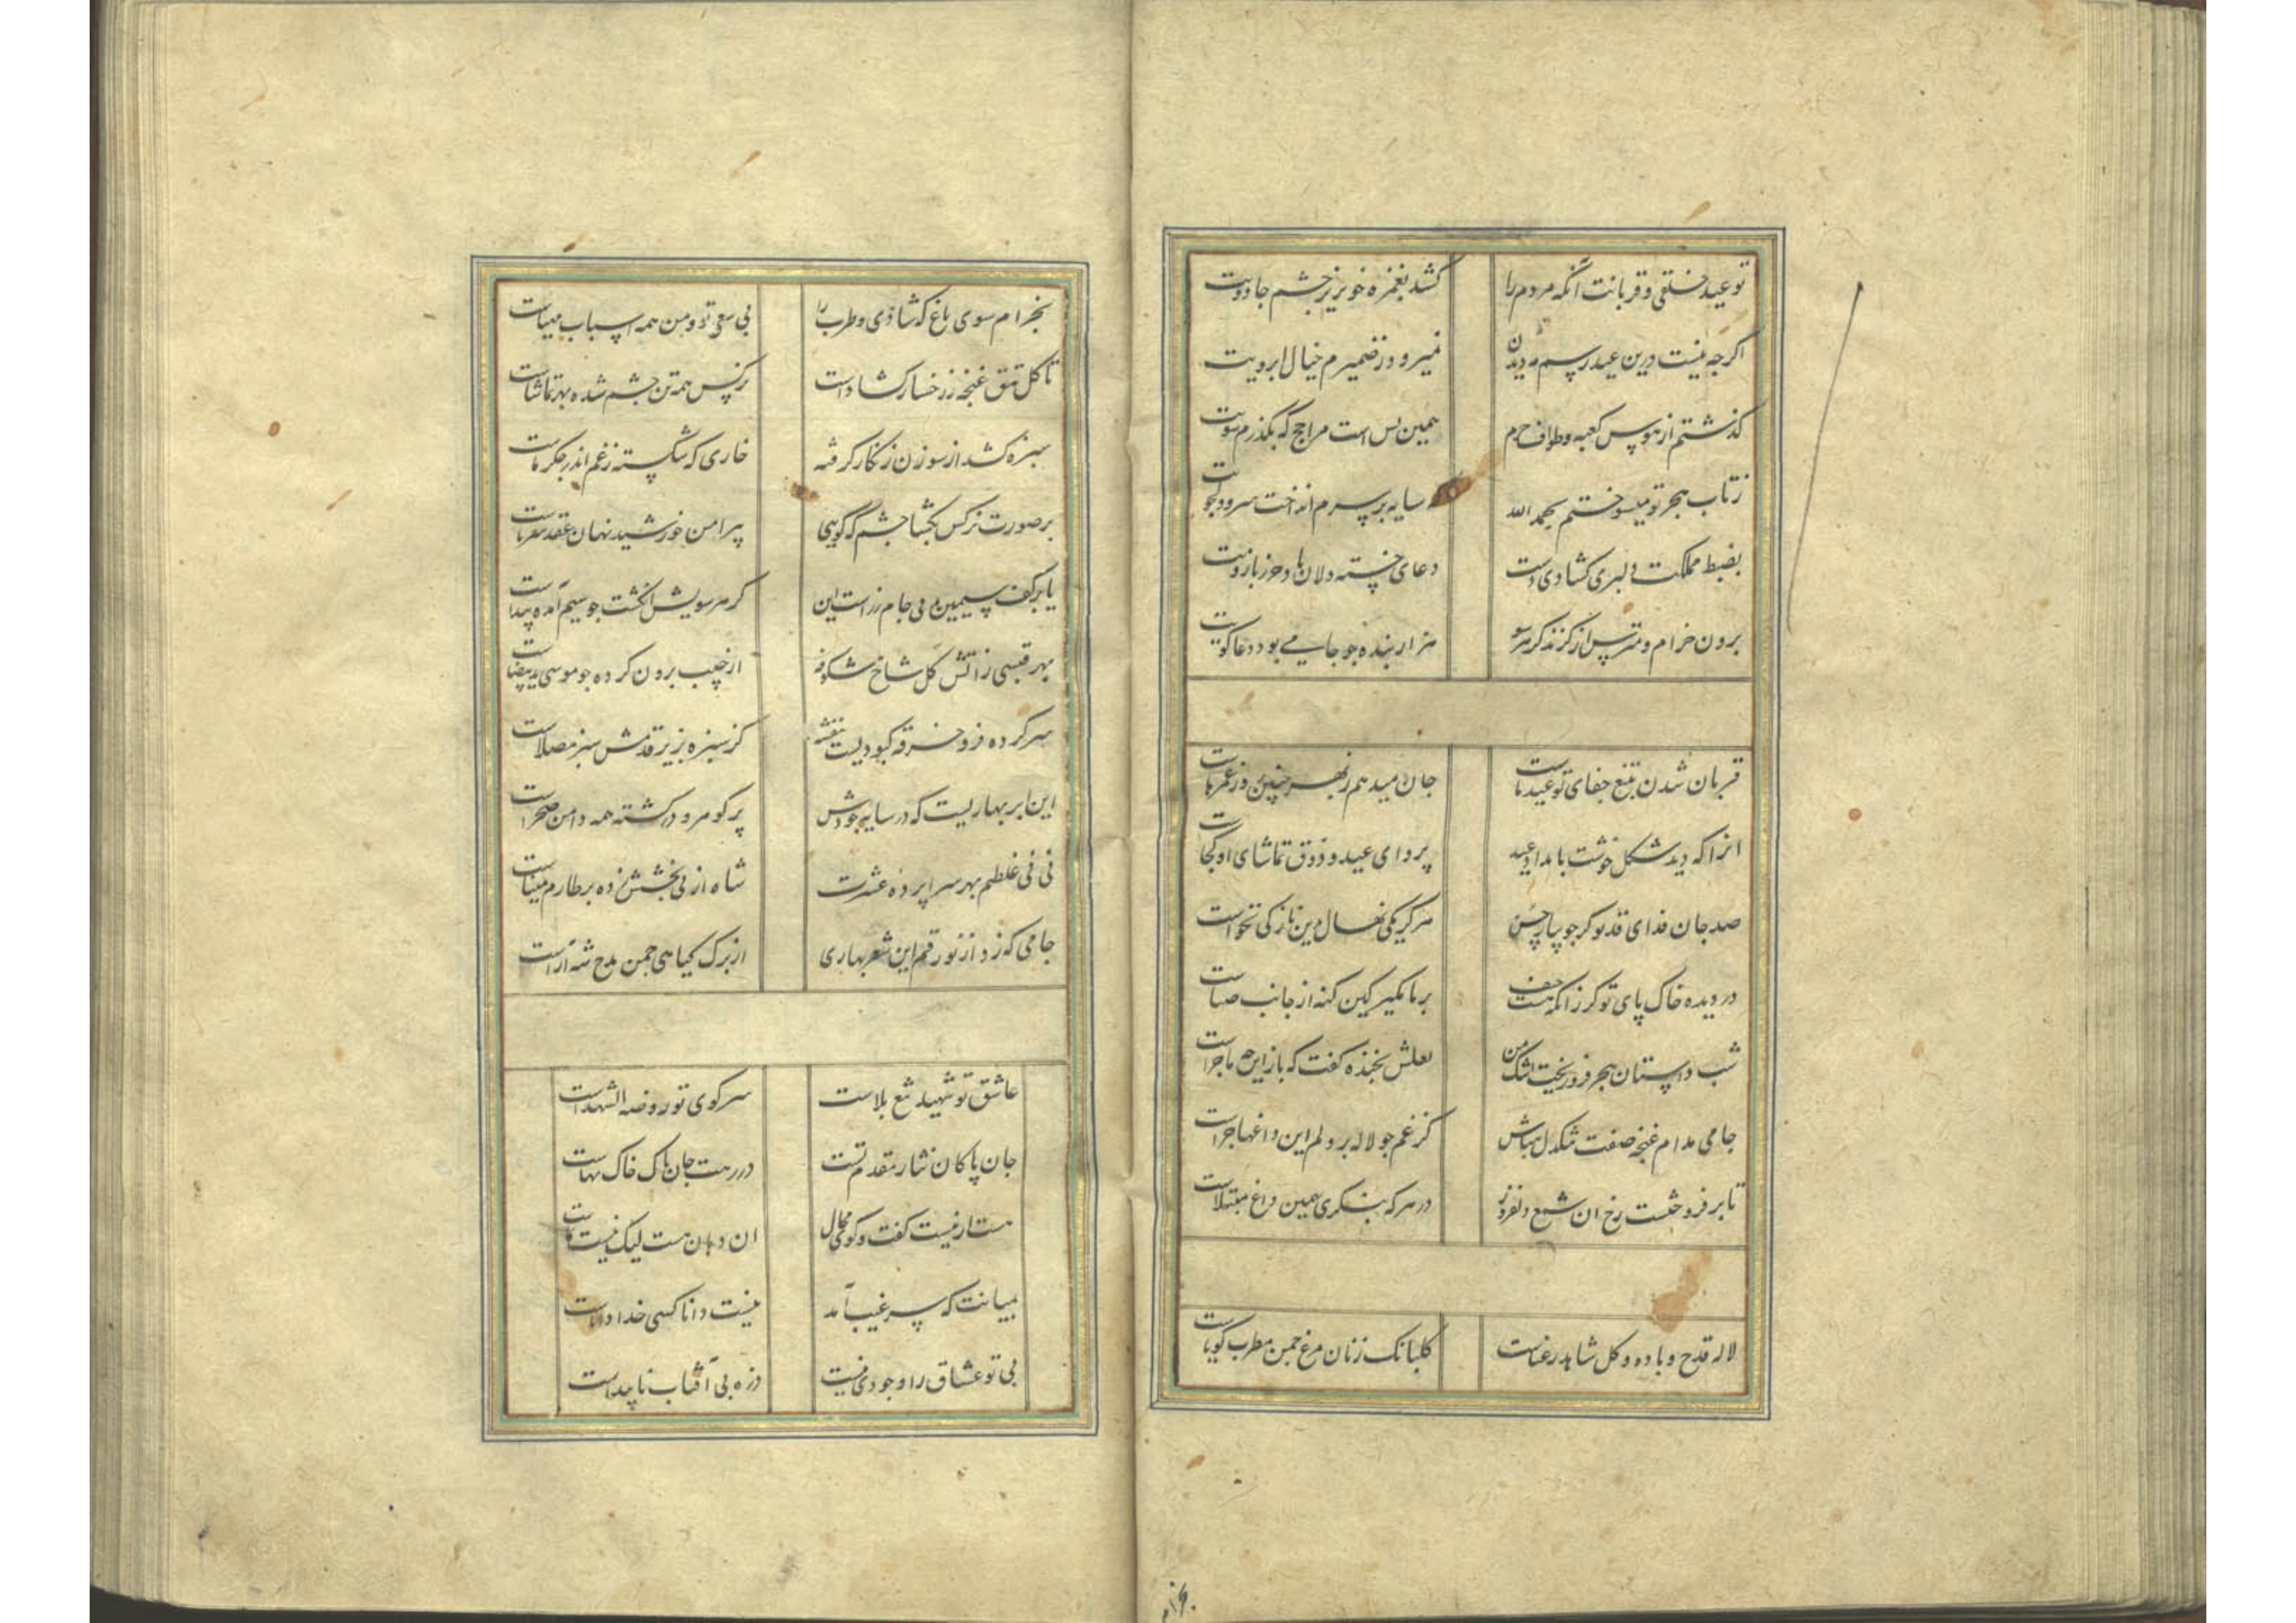 تو عید خلقی و قربانت آنکه مردم را کشد بغمزه خونریز چشم جادویت
اگر چه نیست درین عید رسم مه دیدن نمیرود ز ضمیرم خیال ابرویت
گذشتم از هوس کعبه و طواف حرم همین بس است مرا حج که بگذرم سویت
ز تاب هجر تو میسوختم بحمد الله سایه بر سرم انداخت سرو دلجویت
بضبط مملکت دلبری کشادی دست دعای خسته دلان حرز بازویت
برون خرام و مترس از گزند کز هر سو هزار بنده چو جامی بود دعاگویت
قربان شدن بتیغ جفای تو عید ماست جان میدهیم بهر چنین عید عمرهاست
آنرا که دید شکل خوشت بامداد عید پروای عید و ذوق تماشای او کجاست
صد جان فدای قد تو کز جویبار حسن هرگز یکی نهال بدین نازکی نخواست
در دیده خاک پای تو گر زانکه هست حیف بر ما مگیر کین گنه از جانب صباست
شب داستان هجر فرو ریخت اشک من لعلش بخنده گفت که باز این چه ماجراست
جامی مدام غنچه صفت تنگدل مباش کز غم چو لاله بر دلم این داغها چراست
تا بر فروخست رخ آن شمع دلفروز در هر که بنگری بهمین داغ مبتلاست
لاله قدح و باده و گل شاهد رعناست گلبانگ زنان مرغ چمن مطرب گویاست
بخرام
بخرام سوی باغ که شادی و طرب را بی سعی تو و من همه اسباب مهیاست
تا گل تتق غنچه ز رخسار کشادست نرگس همه تن چشم شده بهر تماشاست
سبزه کشد از سوزن زنگار گرفته خاری که شکسته ز غم اندر جگر ماست
بر صورت نرگس بکشا چشم که گویی پیرامن خورشید نهان عقد ثریاست
یا بر کف سیمین می جام زر است این کز هر سویش انگشت چو سیم آمده پیداست
بهر قبسی ز آتش گل شاخ شکوفه از جیب برون کرده چو موسی ید بیضاست
سر کرده فرو خرقه کبودیست بنفشه کز سبزه بزیر قدمش سبز مصلاست
این ابر بهاریست که در سایه جودش پر گوهر و در گشته همه دامن صحراست
نی نی غلطم بهر سراپرده عشرت شاه از پی بخشش زده بر طارم میناست
جامی که زد از نو رقم این شعر بهاری از برگ گیاهی چمن مدح شه آراست
عاشق تو شهید تیغ بلاست سر کوی تو روضة الشهداست
جان پاکان نثار مقدم تست در رهت جان پاک خاک بهاست
هست ار نیست گفت و گوی محال آن دهان هست لیک نیست نماست
بمیانت که سر غیب آمد نیست دانا کسی خدا داناست
بی تو عشاق را وجودی نیست ذره بی آفتاب ناپیداست